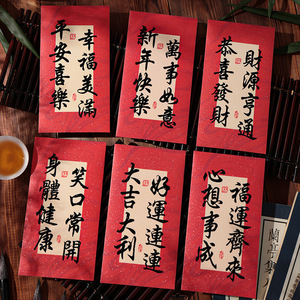 幸福美滿
平安喜樂
萬事如意
新年快樂
財源亨通
恭喜發財
笑口常開
身體健康
好運連連
大吉大利
福運齊來
心想事成
蘭亭集